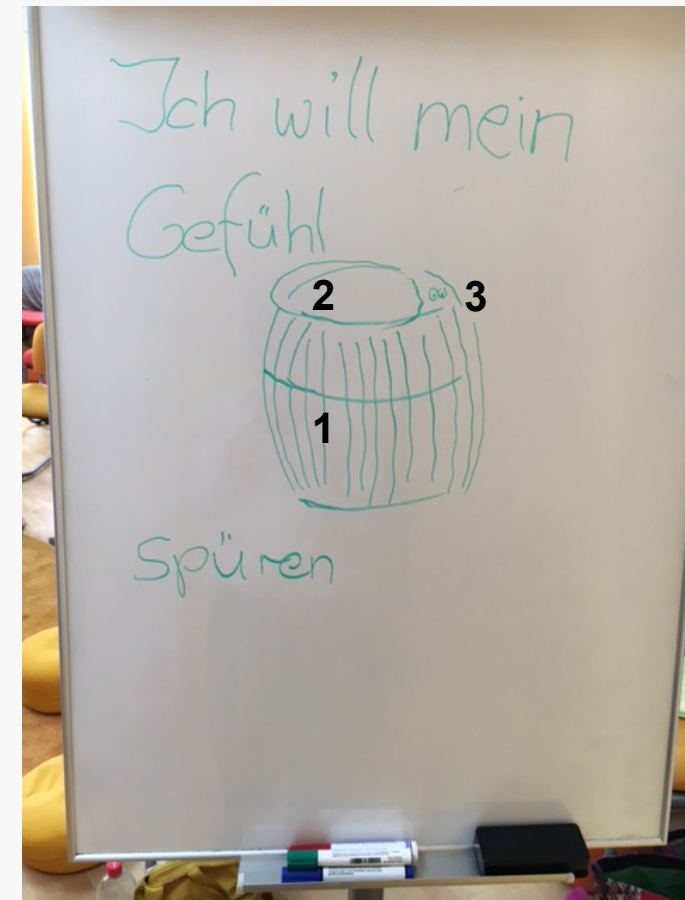 Ich will mein
Gefühl
2
3
1
spüren